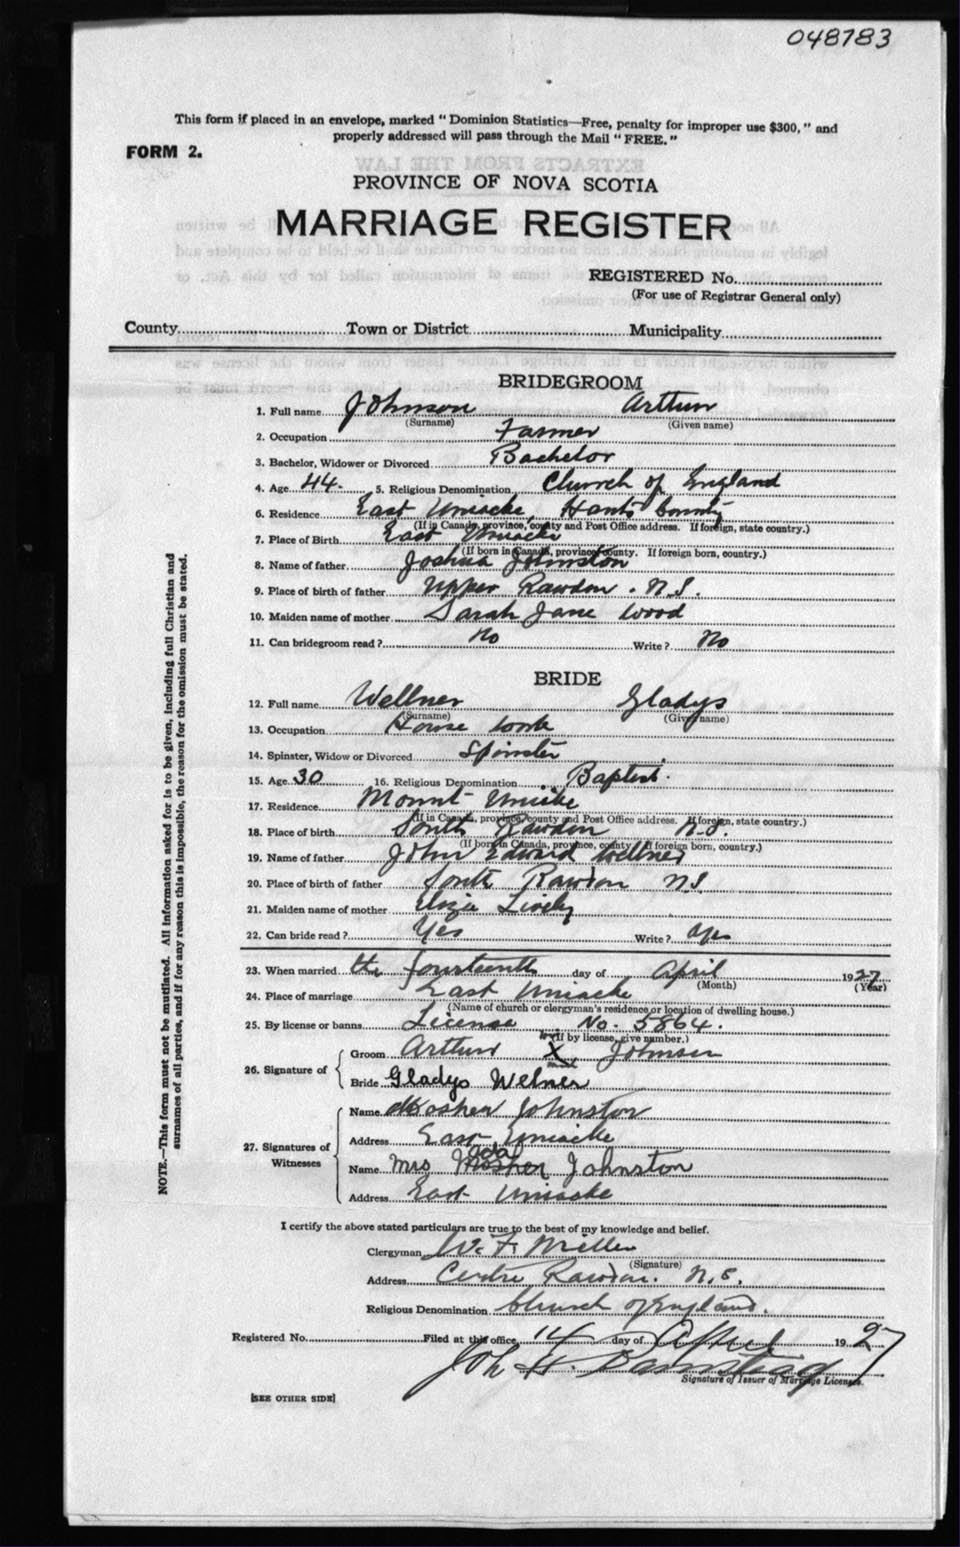 048783
This form if placed in an envelope, marked "Dominion Statistics—Free, penalty for improper use $300," and
properly addressed will pass through the Mail "FREE."
FORM 2.
PROVINCE OF NOVA SCOTIA
MARRIAGE REGISTER
REGISTERED No.
(For use of Registrar General only)
County Town or District Municipality
BRIDEGROOM
1. Full name Johnson Arthur
(Surname) (Given name)
2. Occupation Farmer
3. Bachelor, Widower or Divorced Bachelor
4. Age 44 5. Religious Denomination Church of England
6. Residence East Uniacke, Hants County
(If in Canada, province, county and Post Office address. If foreign, state country.)
7. Place of Birth East Uniacke
(If born in Canada, province county. If foreign born, country.)
8. Name of father Joshua Johnston
9. Place of birth of father Upper Rawdon. N.S.
10. Maiden name of mother Sarah Jane Wood
11. Can bridegroom read? No Write? No
BRIDE
12. Full name Wellner Gladys
(Surname) (Given name)
13. Occupation House work
14. Spinster, Widow or Divorced Spinster
15. Age 30 16. Religious Denomination Baptist.
17. Residence Mount Uniacke
(If in Canada, province, county and Post Office address. If foreign, state country.)
18. Place of birth South Rawdon N.S.
(If born in Canada, province, county. If foreign born, country.)
19. Name of father John Edward Wellner
20. Place of birth of father South Rawdon N.S.
21. Maiden name of mother Eliza Lively
22. Can bride read? Yes Write? Yes
23. When married the fourteenth day of April 1927
(Month) (Year)
24. Place of marriage East Uniacke
(Name of church or clergyman's residence or location of dwelling house.)
25. By license or banns License No. 5864.
(If by license, give number.)
26. Signature of
Groom Arthur X Johnson
Bride Gladys Welner
27. Signatures of Witnesses
Name Mosher Johnston
Address East Uniacke
Name Mrs Johnston
Address East Uniacke
I certify the above stated particulars are true to the best of my knowledge and belief.
Clergyman W. F. Miller
(Signature)
Address Centre Rawdon. N.S.
Religious Denomination Church of England.
Registered No. Filed at this office, 14 day of April 1927
Joh H.
Signature of Issuer of Marriage Licenses.
[SEE OTHER SIDE]
NOTE.—This form must not be mutilated. All information asked for is to be given, including full Christian and
surnames of all parties, and if for any reason this is impossible, the reason for the omission must be stated.